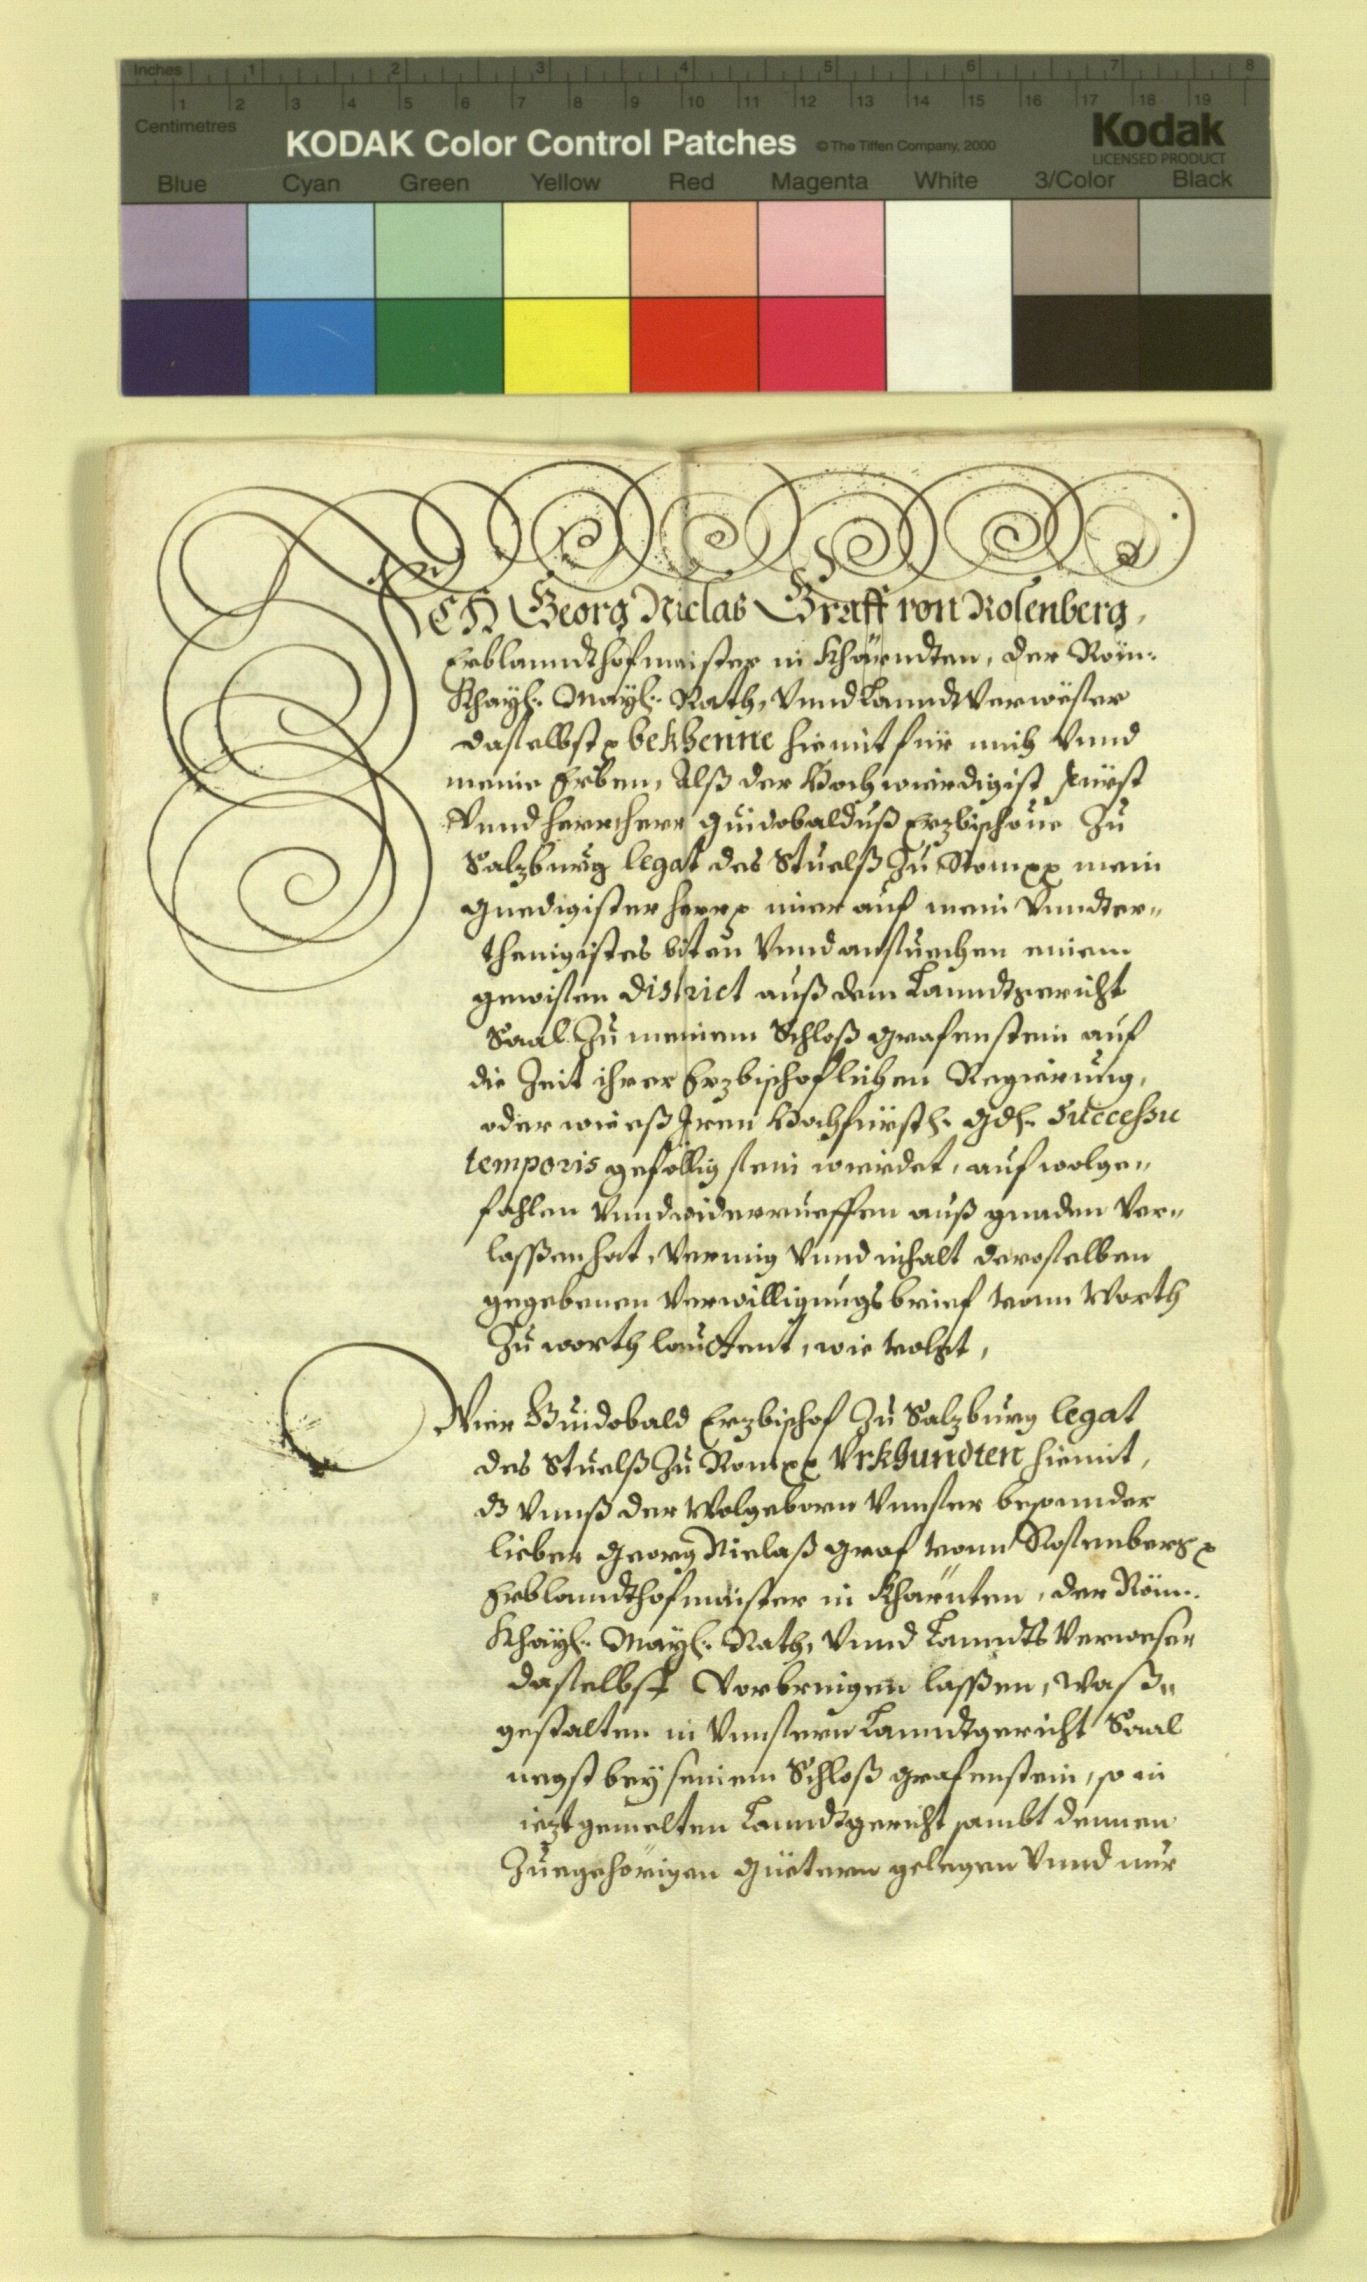 Inches 1 2 3 4 5 6 7 8
1 2 3 4 5 6 7 8 9 10 11 12 13 14 15 16 17 18 19
Centimetres
KODAK Color Control Patches © The Tiffen Company, 2000 Kodak
LICENSED PRODUCT
Blue Cyan Green Yellow Red Magenta White 3/Color Black
ICH Georg Niclas Graff von Rosenberg,
Erblanndthofmaister in Khärndten, der Röm:
Khayl: Mayl: Rath, Vnnd Lanndt Verwester
daselbst bekhenne hiemit für mich Vnnd
meine Erben, Alß der Hochwürdigist Fürst
Vnnd herr herr Guidobalduß Erzbischoue Zu
Salzburg legat des Stuelß Zu Rom mein
gnedigister herr mier auf mein Vnndter„
thenigistes biten Vnnd ansuechen einem
gewissen district auß dem Lanndtgericht
Saal Zu meinem Schloß Grafenstein auf
die Zeit ihrer Erzbischoflichen Regierung,
oder wie eß Iren Hochfürstl: Gdl: Successu
temporis geföllig sein wirdet, auf wolge„
fahlen Vnnd widerrueffen auß gnaden Ver„
lassen hat, Vermig Vnnd inhalt deroselben
gegebenen Verwilligungs brief vonn Worth
Zu worth lauttent, wie volgt,
Wier Guidobald Erzbischof Zu Salzburg legat
des Stuelß Zu Rom Vrkhundten hiemit,
dz Vnnß der Wolgeborn Vnnser besonnder
lieber Georg Niclaß Graf vonn Rosenberg
Erblanndthofmaister in Khärnten, der Röm:
Khayl: Mayl: Rath, Vnnd Lanndts Verweser
daselbst Vorbringen lassen, Waß„
gestalten in Vnnsern Lanndtgericht Saal
negst bey seinem Schloß Grafenstein, so in
iezt gemelten Lanndtgericht sambt dennen
Zuegehörigen Güetern gelegen Vnnd nur